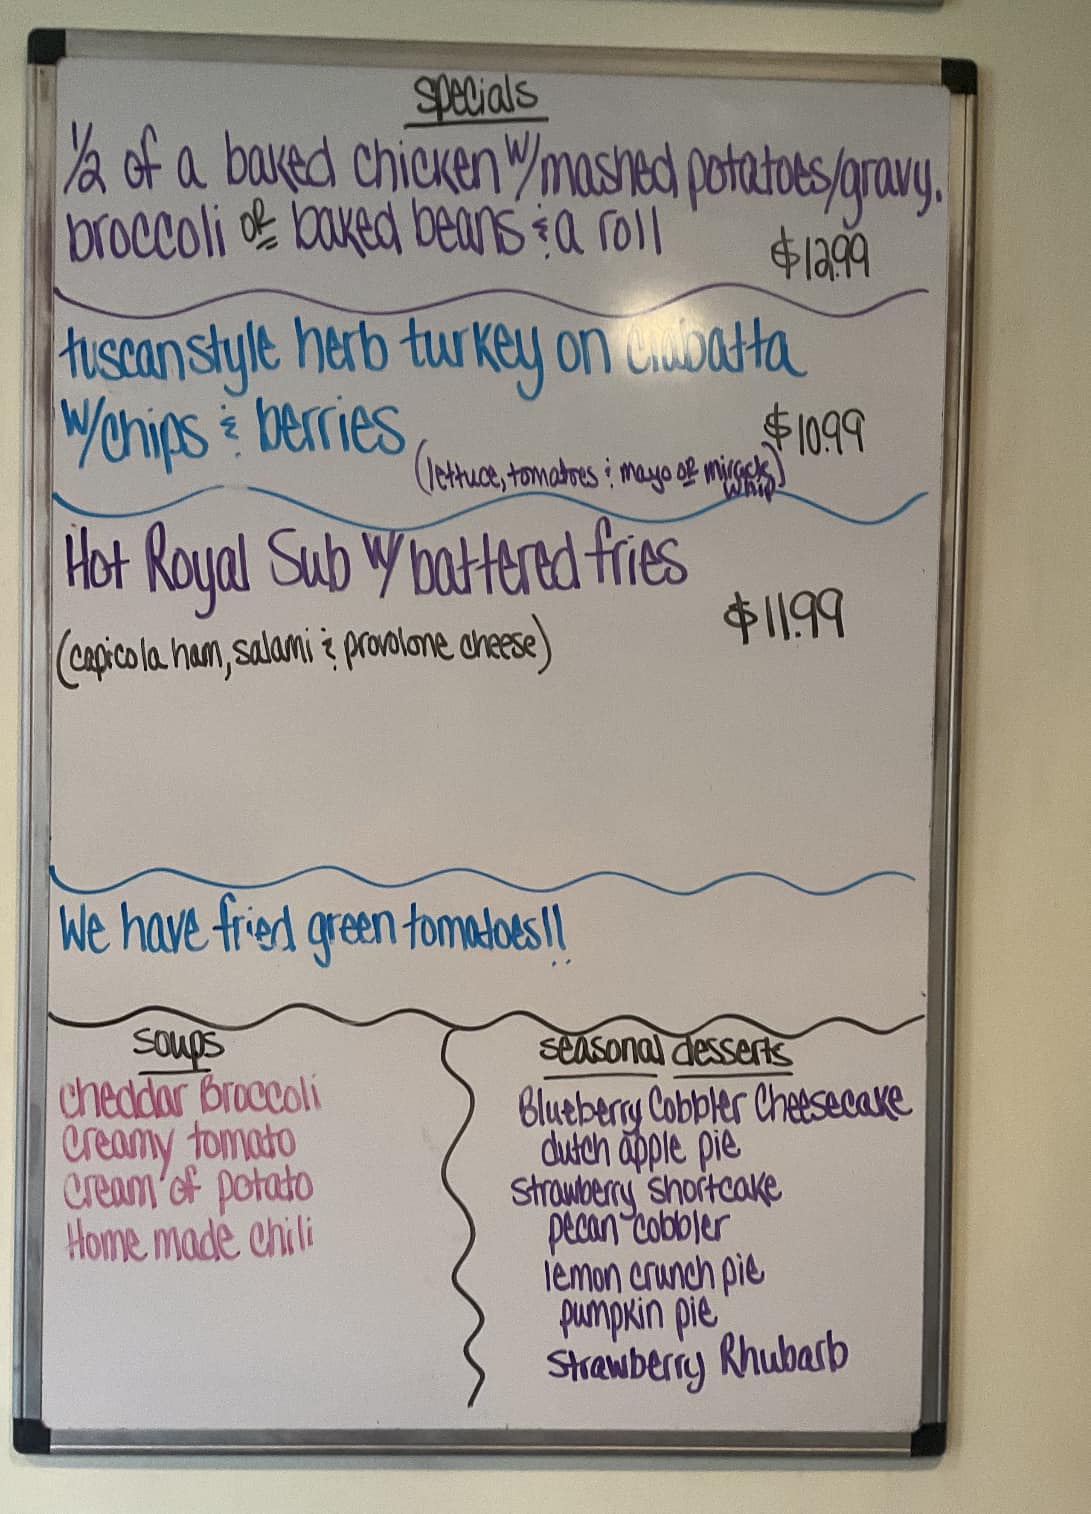 specials
1/2 of a baked chicken w/mashed potatoes/gravy.
broccoli or baked beans & a roll
$12.99
tuscan style herb turkey on Ciabatta
w/chips & berries
$10.99
(lettuce, tomatoes & mayo or miracle
whip)
Hot Royal Sub w/ battered fries
$11.99
(capicola ham, salami & provolone cheese)
We have fried green tomatoes!!
soups
cheddar Broccoli
Creamy tomato
Cream of potato
Home made chili
seasonal desserts
Blueberry Cobbler Cheesecake
dutch apple pie
Strawberry shortcake
pecan cobbler
lemon crunch pie
pumpkin pie
Strawberry Rhubarb